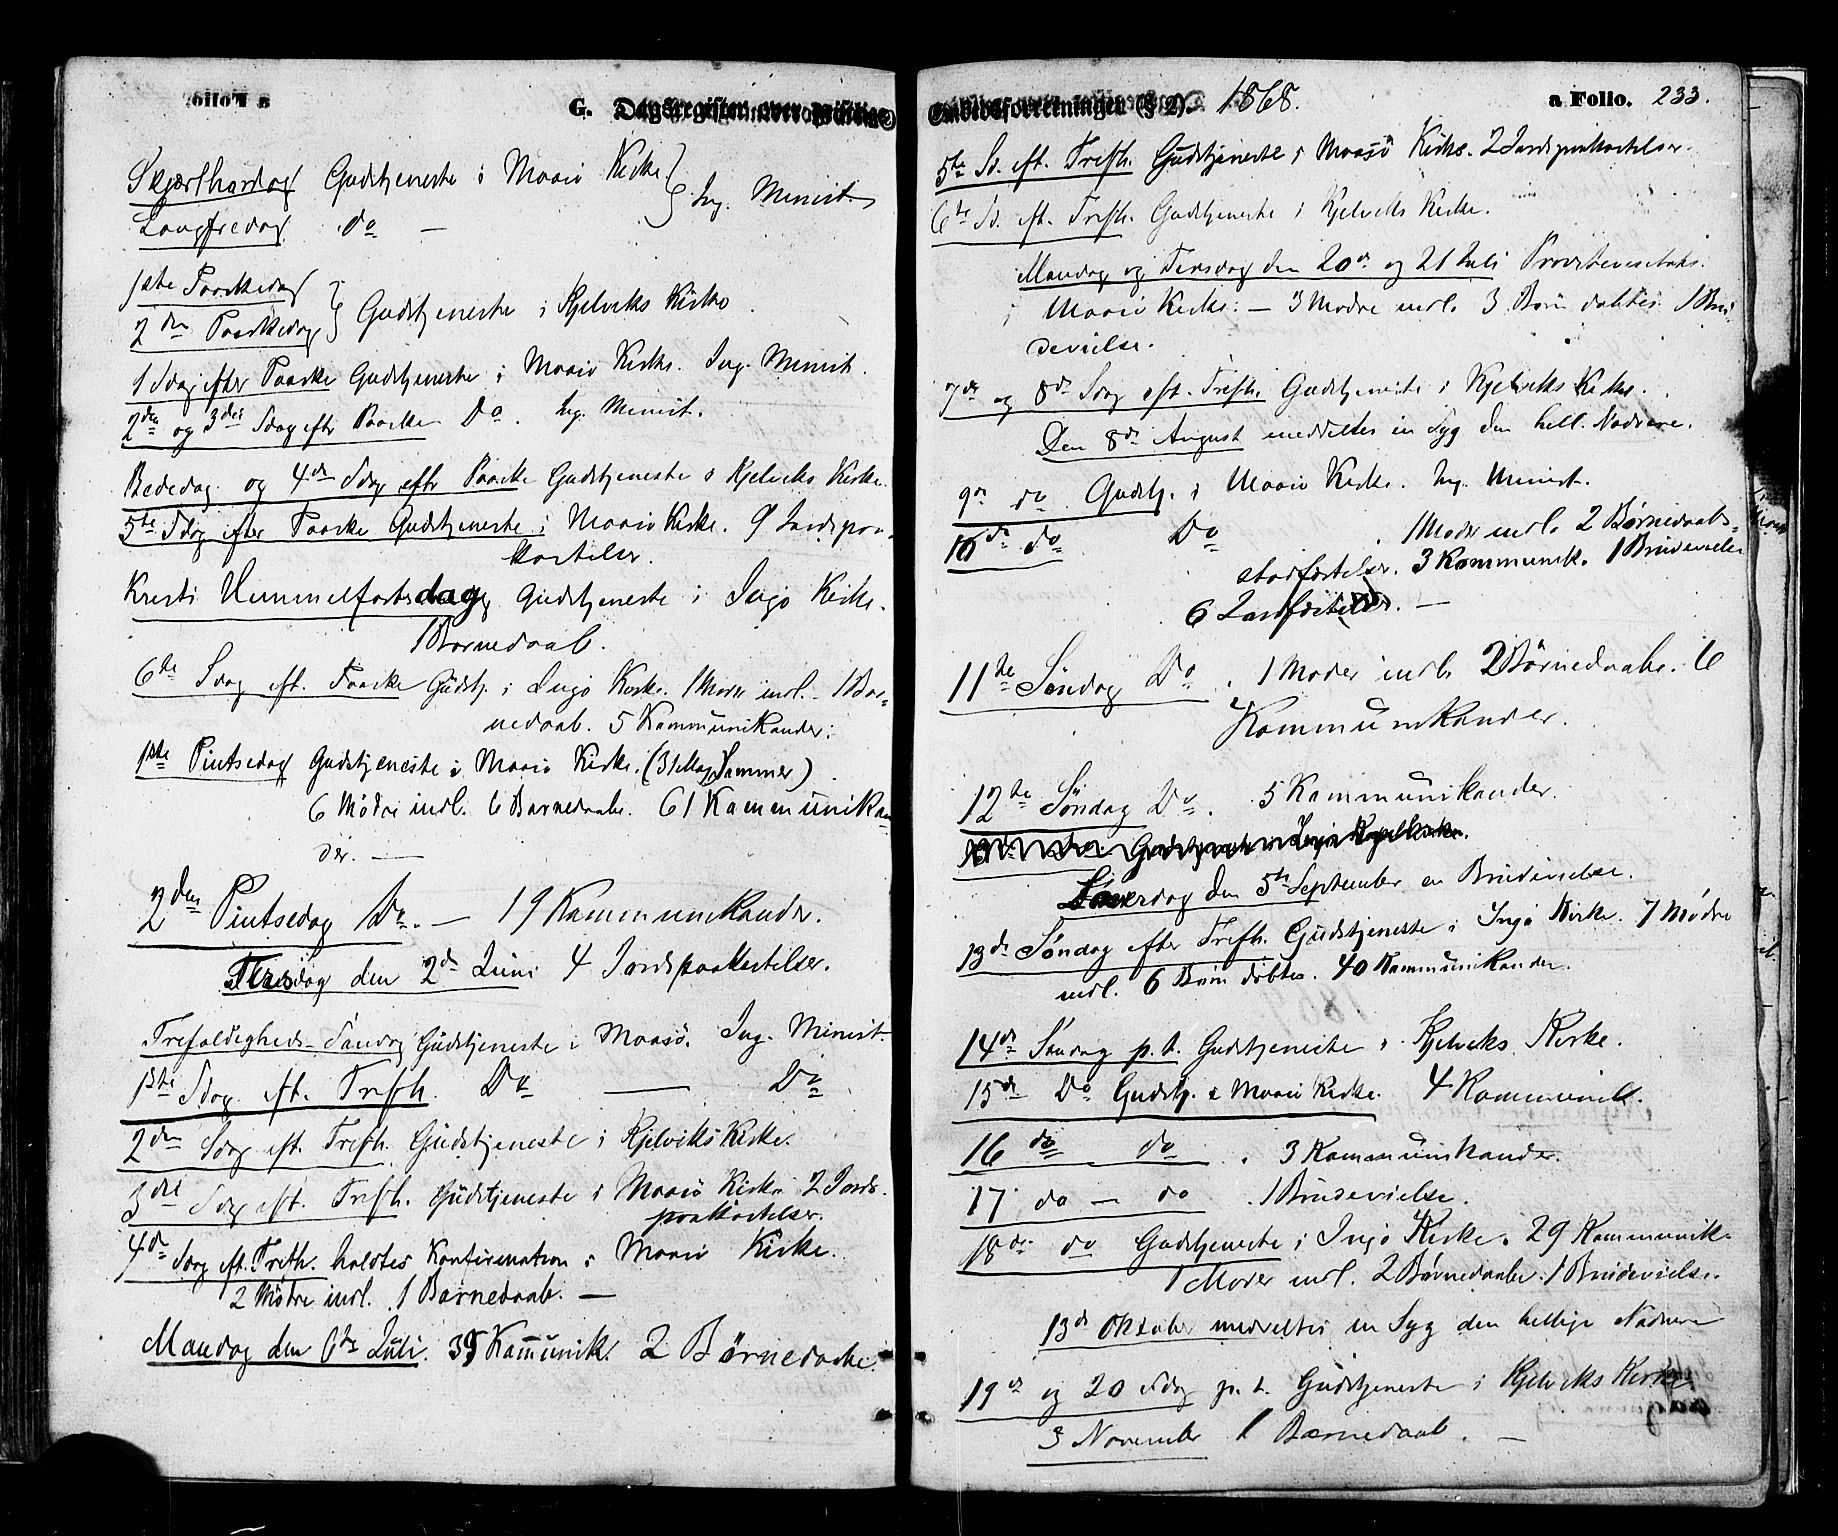 G. Dagsregister over geistlige
Skjærthorsdag Gudstjeneste i Maasø Kirke } Ing. Minist.
Langfredag do —
1ste Paaskedag } Gudstjeneste i Kjelviks Kirke.
2den Paaskedag
1 Sdag efter Paaske Gudstjeneste i Maasø Kirke. Ing. Minist.
2den og 3die Sdag eftr Paaske Do. Ing. Minist.
Bededag og 4de Sdag eftr Paaske Gudstjeneste i Kjelviks Kirke.
5te Sdag efter Paaske Gudstjeneste i Maasø Kirke. 9 Jordspaa-
kastelser.
Kristi Himmelfartsdag Gudstjeneste i Ingø Kirke.
1 Barnedaab.
6te Sdag eft. Paaske Gudstj. i Ingø Kirke. 1 Moder indl. 1 Bar-
nedaab. 5 Kommunikander.
1ste Pintsedag Gudstjeneste i Maasø Kirke. (31 Maj, Sammer)
6 Mødre indl. 6 Barnedaabe. 61 Kommunikan-
der. —
2den Pintsedag Do. — 19 Kommunikander.
Tirsdag den 2de Juni 4 Jordspaakastelser.
Trefoldigheds-Søndag Gudstjeneste i Maasø. Ing. Minist.
1ste Sdag eft. Trefh. Do — Do
2den Sdag eft. Trefh. Gudstjeneste i Kjelviks Kirke.
3die Sdag eft. Trefh. Gudstjeneste i Maasø Kirke 2 Jords-
paakastelser.
4de Sdag eft. Trefh. holdtes Konfirmation i Maasø Kirke.
2 Mødre indl. 1 Barnedaab. —
Mandag den 6te Juli. 39 Kommunik. 2 Børnedaabe.
Embedsforretninger (§ 2). 1868. a Folio. 233.
5te Sd. eft. Trefh. Gudstjeneste i Maasø Kirke. 2 Jordspaakastelser.
6te Sd. eft. Trefh. Gudstjeneste i Kjelviks Kirke.
Mandag og Tirsdag den 20de og 21 Juli Provstevisitats.
i Maasø Kirke. — 3 Mødre indl. 3 Børn døbtes. 1 Bru-
devielse.
7de og 8de Sdag eft. Trefh. Gudstjeneste i Kjelviks Kirke.
Den 8de August meddeltes en Syg den hell. Nadvere.
9de do Gudstj. i Maasø Kirke. Ing. Minist.
10de do Do . 1 Moder indl. 2 Børnedaabs-
stadfæstelser. 3 Kommunik. 1 Brudevielse
6 Jordfæstelser. —
11te Søndag Do . 1 Moder indl. 2 Børnedaabe. 6
Kommunikander.
12te Søndag Do. 5 Kommunikander.
Løverdag den 5te September en Brudevielse.
13de Søndag efter Trefh. Gudstjeneste i Ingø Kirke. 7 Mødre
indl. 6 Børn døbtes. 40 Kommunikander.
14de Søndag p. t. Gudstjeneste i Kjelviks Kirke.
15de Do Gudstj. i Maasø Kirke. 4 Kommunik.
16 do do . 3 Kommunikander.
17 do — do . 1 Brudevielse.
18de do Gudstjeneste i Ingø Kirke. 29 Kommunik.
1 Moder indl. 2 Børnedaabe. 1 Brudevielse.
13de Oktober meddeltes en Syg den hellige Nadvere
19de og 20 Sdag p. t. Gudstjeneste i Kjelviks Kirke
3 November 1 Barnedaab. —